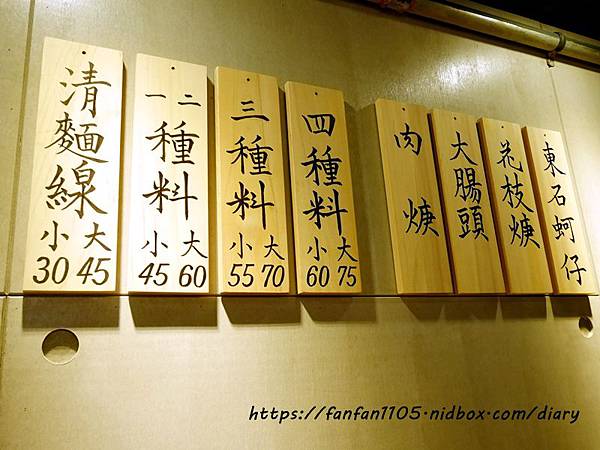 清麵線
小 大
30 45
一 二
種料
小 大
45 60
三種料
小 大
55 70
四種料
小 大
60 75
肉焿
大腸頭
花枝焿
東石蚵仔
https://fanfan1105.nidbox.com/diary